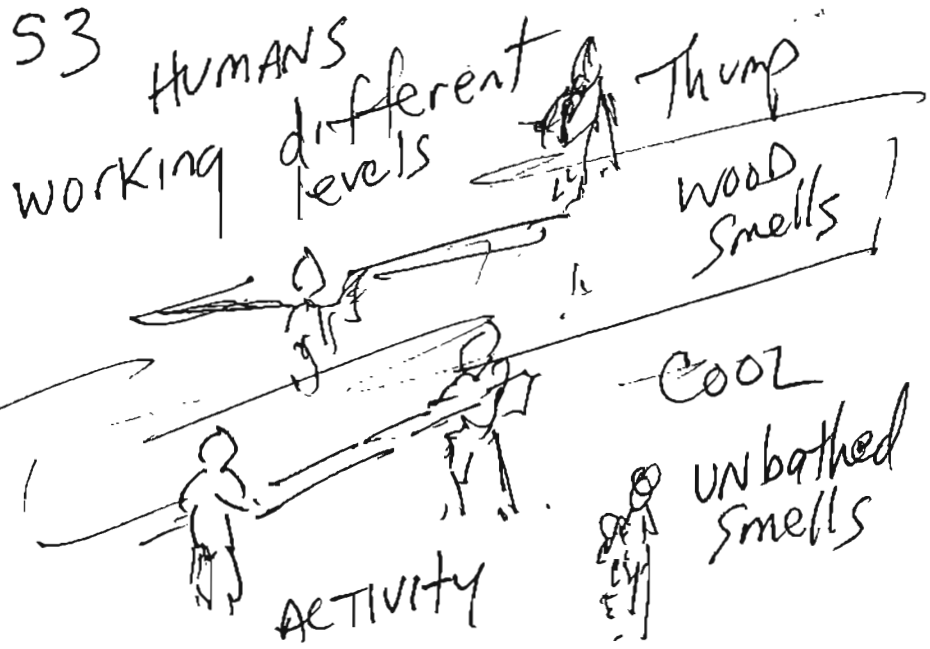 S3
HUMANS
working different
levels
Thump
WOOD
Smells
COOL
UNbathed
Smells
ACTIVITY